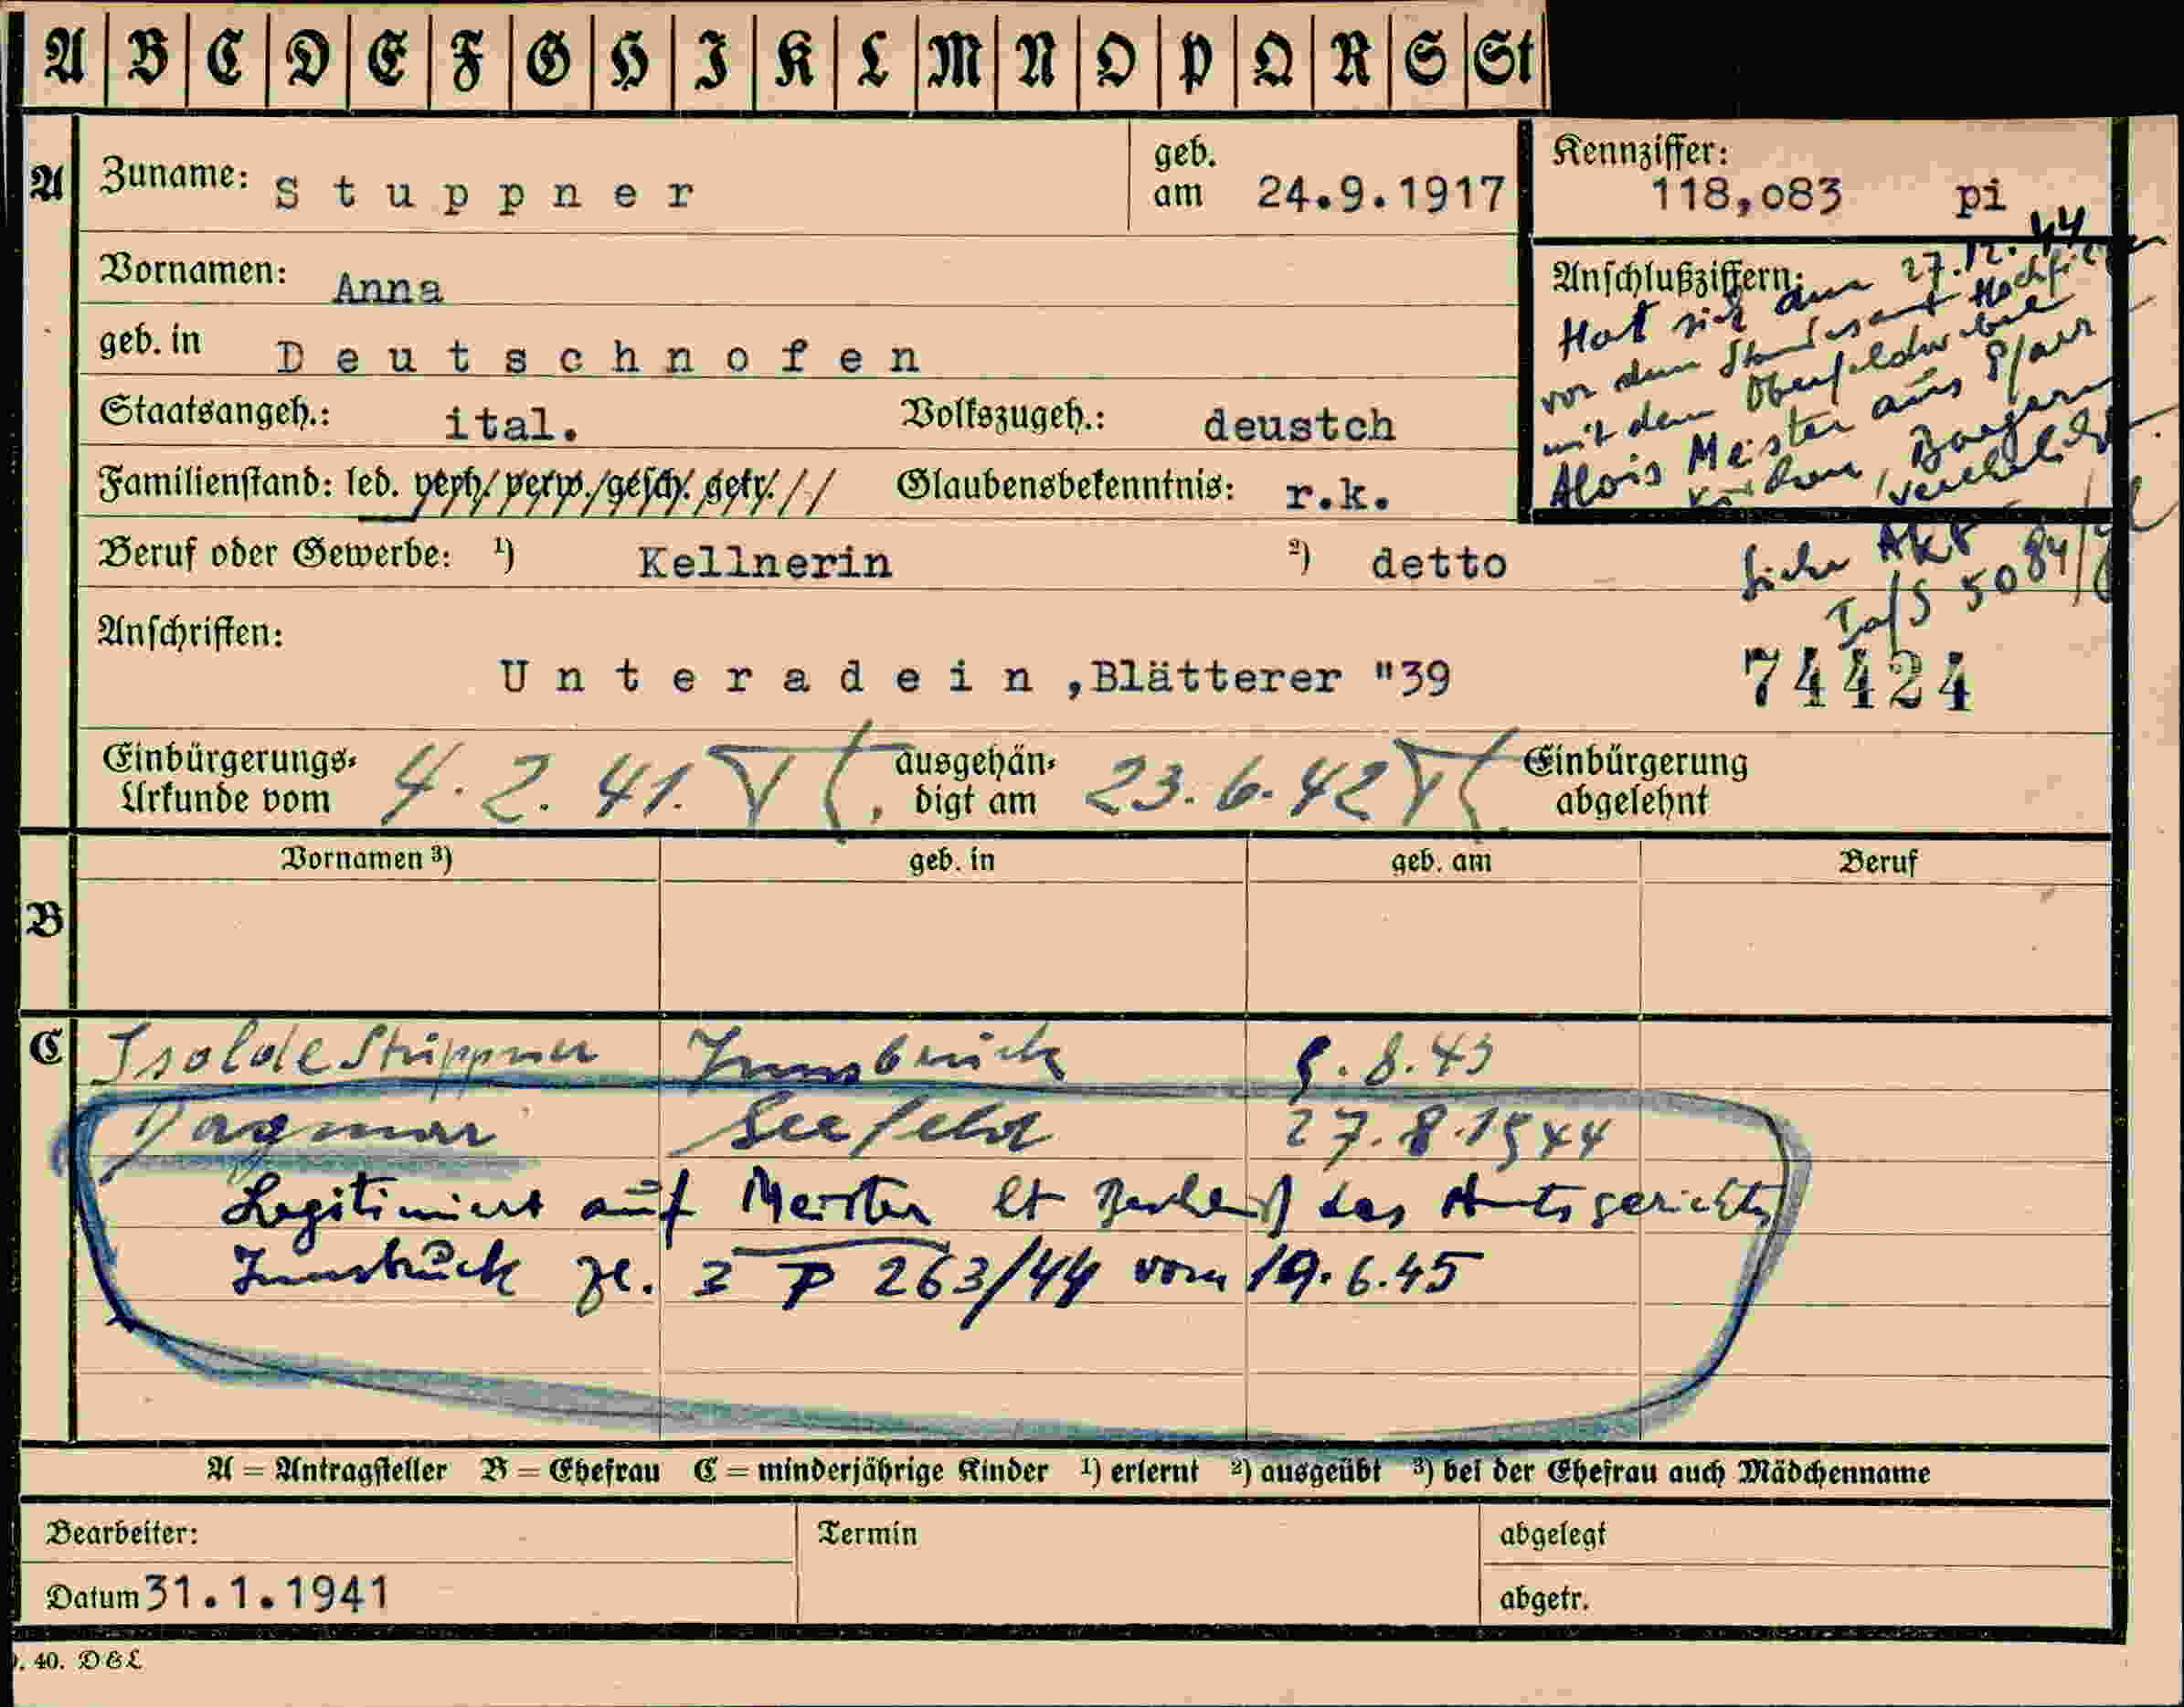 A B C D E F G H I K L M N O P Q R S St
A Zuname: Stuppner geb. am 24.9.1917
Kennziffer: 118,o83 pi
Vornamen: Anna
geb. in Deutschnofen
Staatsangeh.: ital. Volkszugeh.: deustch
Familienstand: led. verh. verw. gesch. getr. Glaubensbekenntnis: r.k.
Anschlußziffern:
Hat sich am 27.12.44
vor dem Standesamt
mit dem Oberfeldwebel
Alois Meister aus Pfarr
kirchen, Bayern
verehelicht
Beruf oder Gewerbe: ¹) Kellnerin ²) detto
siehe Akt
74424
Anschriften:
Unteradein,Blätterer "39
Einbürgerungs-Urkunde vom 4.2.41. ausgehändigt am 23.6.42 Einbürgerung abgelehnt
Vornamen ³) geb. in geb. am Beruf
B
C Isolde Stuppner Innsbruck .8.43
Dagmar Seefeld 27.8.1944
Legitimiert auf Meister lt Beschluß des Amtsgerichts
Innsbruck zl. 3 P 263/44 vom 19.6.45
A = Antragsteller B = Ehefrau C = minderjährige Kinder ¹) erlernt ²) ausgeübt ³) bei der Ehefrau auch Mädchenname
Bearbeiter: Termin abgelegt
Datum 31.1.1941 abgetr.
. 40. D&L